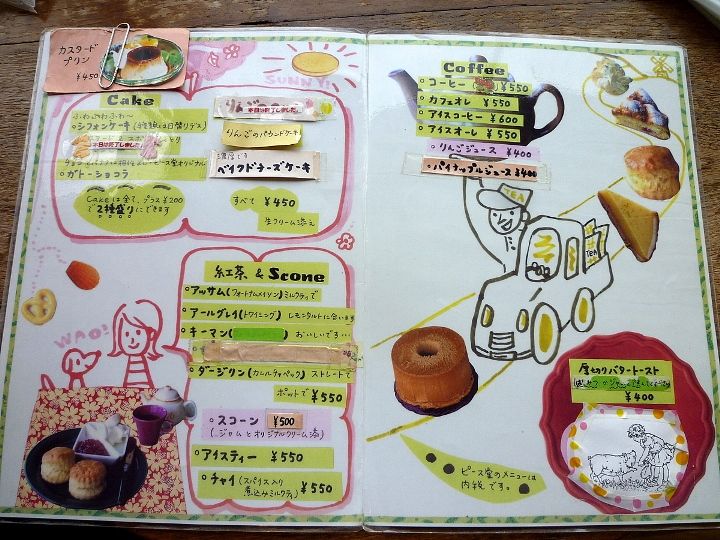 カスタード
プリン
¥450
SUNNY!
Cake
ふわふわふわ〜
シフォンケーキ(種類は日替りデス)
本日は終了しました。
ガトーショコラ
Cakeは全て、プラス¥200
で2種盛りにできます
本日は終了しました。
りんごのパウンドケーキ
濃厚です
ベイクドチーズケーキ
すべて ¥450
生クリーム添え
WAO!
紅茶 & Scone
アッサム(フォートナムメイソン)ミルクティで
アールグレイ(トワイニング) レモンタルトに合います
キーマン( ) おいしいです…
ダージリン(カレルチャペック) ストレートで
ポットで ¥550
スコーン ¥500
(ジャムとオリジナルクリーム添)
アイスティー ¥550
チャイ(スパイス入り
煮込みミルクティ) ¥550
Coffee
コーヒー ¥550
カフェオレ ¥550
アイスコーヒー ¥600
アイスオーレ ¥550
りんごジュース ¥400
パイナップルジュース ¥400
TEA
TEA
厚切りバタートースト
¥400
ピース堂のメニューは
内税です。